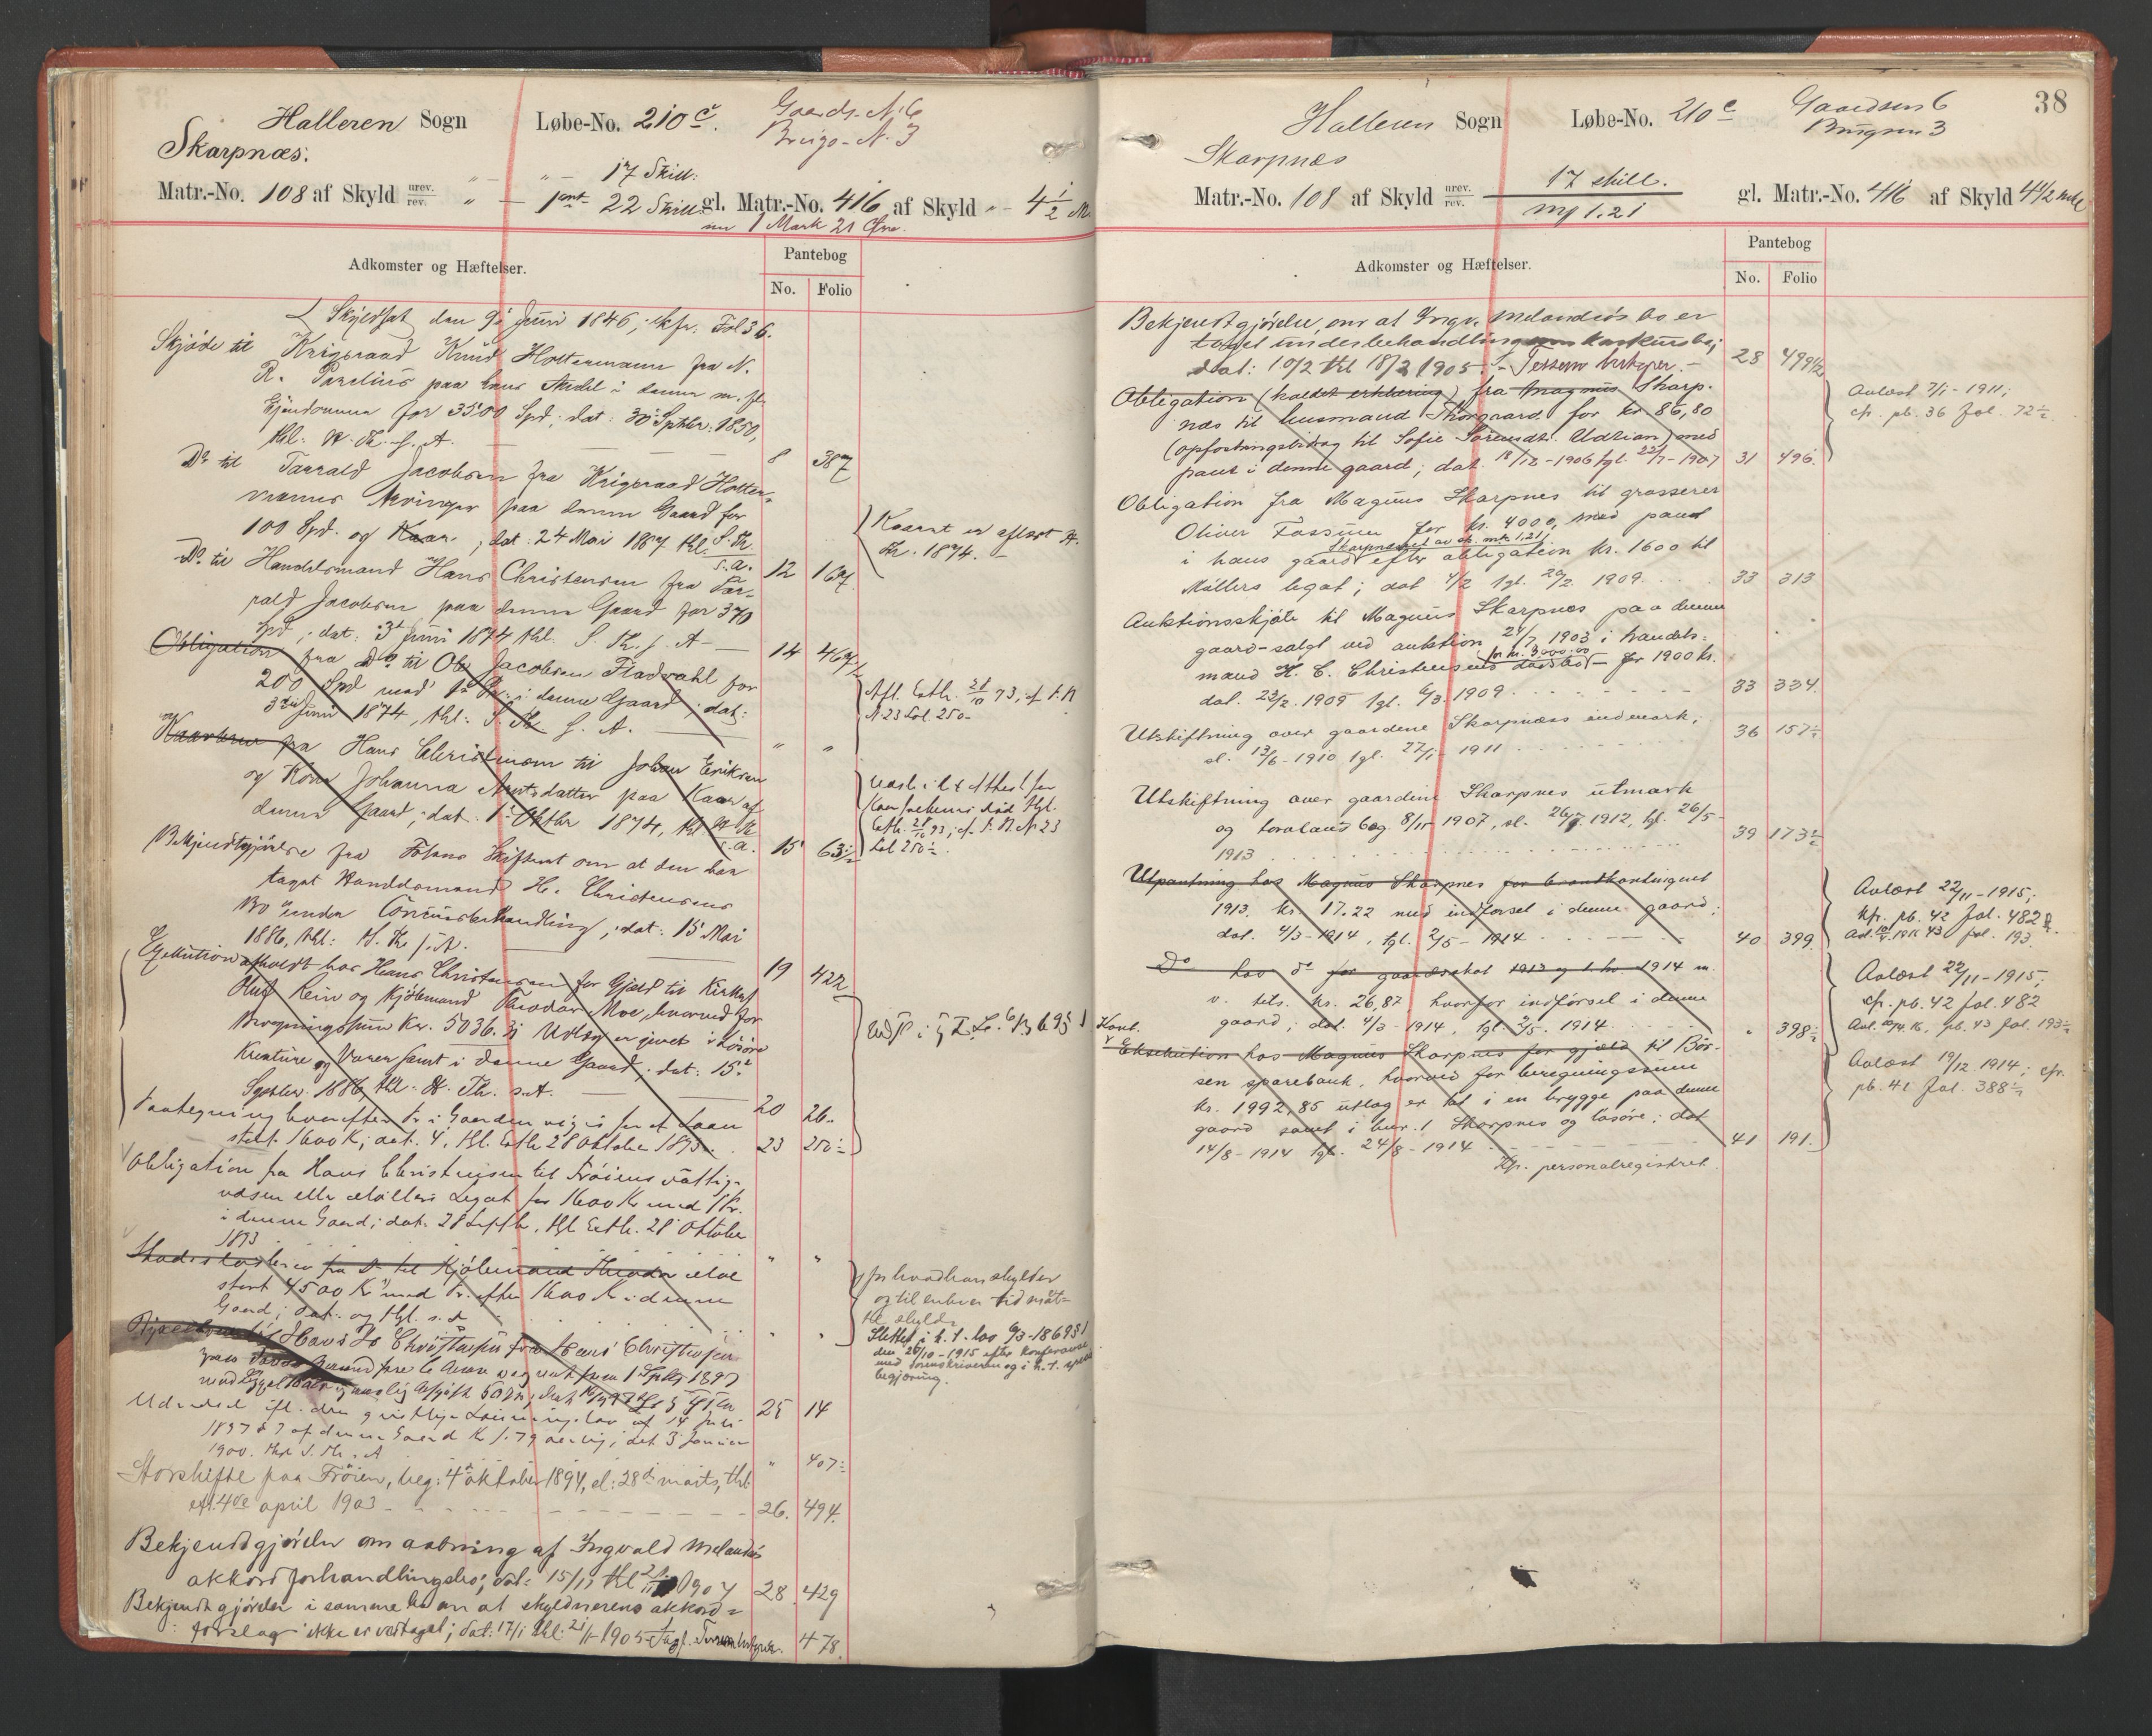 Halleren Sogn Løbe-No. 210 c. Gaards-N. 6
Brugs-N. 3
Skarpnæs.
" — " — 17 Skill:
Matr.-No. 108 af Skyld urev. rev. " — 1 ort 22 Skill. gl. Matr.-No. 416 af Skyld - 4 1/2 M.
nu 1 Mark 21 Øre.
Adkomster og Hæftelser.
Pantebog
No. Folio
Skyldsat den 9 Juni 1846; cfr. Fol 36.
Skjøde til Krigsraad Knud Holtermann fra N.
R. Parelius paa hans Andel i denne m. fl.
Eiendomme for 3500 Spd; dat: 30 Septbr: 1850,
8 387
Do til Taarald Jacobsen fra Krigsraad Holter-
manns Arvinger paa denne Gaard for
100 Spd. og Kaar; dat. 24 Mai 1867 thl. S. Th.
s. a. 12 167.
Kaaret er aflæst A.
Th. 1874.
Do til Handelsmand Hans Christensen fra Taa-
rald Jacobsen paa denne Gaard for 370
Spd; dat: 3 Juni 1874 thl. S. Th. s. A — 14 467 1/2
Obligation fra do til Ole Jacobsen Fladvahl for
200 Spd med 1ste Pr. i denne Gaard; dat:
3die Juni 1874, thl: S. Th. s. A. " "
Aft. Exth. 28/10 93, cf. P. B.
N 23 Fol. 250-
Kaarbrev fra Hans Christensen til Johan Eriksen
og Kone Johanna Arntsdatter paa Kaar af
denne Gaard; dat. 1 Oktbr 1874, thl. H. Th.
s. a. 15 63 1/2
Bekjendtgjørelse fra Fosens Skifteret om at den har
taget Handelsmand H. Christensens
Bo under Concursbehandling; dat: 15 Mai
1886, thl: S. Th. s. A. 19 422
Exekution afholdt hos Hans Christensen for Gjæld til Kirkesf
Oluf Rein og Kjøbmand Theodor Moe, hvorved for
Beregningssum Kr. 5036.31 Udlæg er givet i Løsøre
Kreature og Varer samt i denne Gaard; dat: 15
Septbr. 1886, thl. H. Th. s. A. 20 26.
Paategning hvorefter Pr. i Gaarden vigis for et Laan
stort 1600 K; dat. 4, thl. Exth 28 Oktober 1893. 23 250 1/2
Obligation fra Hans Christensen til Frøiens Fattig-
væsen eller Møllers Legat for 1600 Kr med 1 Pr.
i denne Gaard; dat. 28 Septbr, thl Exth. 28 Oktober
1893 " "
Skadesløsbrev fra do til Kjøbmand Theodor Moe
stort 4500 Kr med Pr. efter 1600 K i denne
Gaard; dat. og thl. s. d " "
for hvad han skylder
og til enhver tid maat-
te skylde
Slettet i h. t. lov 6/3-1869 § 1
den 26/10-1915 efter konferance
med sorenskriveren og i h. t. sp
begjæring.
Hans Christensen
25 14
Udmisel ifl. den gjeistlige Løsningslov af 14 Juli
1897 § 7 af denne Gaard K 1.79 aarlig; dat 3 Januar
1900. thl S. Th. s. A " 407 1/2
Storskifte paa Frøien, beg: 4de oktober 1894, sl: 28de marts, thl.
efl. 4de april 1903 — 26. 494.
Bekjendtgjørelse om aabning af Ingvald Melandsøs
akkordforhandlingsbo; dat: 15/11 thl 21/11 1904 28 429
Bekjendtgjørelse i samme bo om at skyldnerens akkord-
forslag ikke er vedtaget; dat: 17/1 thl: 21/1 1905 478.
38
Halleren Sogn Løbe-No. 210 c Gaardsnr 6
Brugsnr 3
Skarpnæs
Matr.-No. 108 af Skyld urev. rev. 17 skill. mk 1.21 gl. Matr.-No. 416 af Skyld 4 1/2 mkl
Adkomster og Hæftelser.
Pantebog
No. Folio
Bekjendtgjørelse, om at Ingv. Melandsøs bo er
taget under behandling som konkursbo;
dat: 10/2 thl 18/2 1905. 28 499 1/2
Obligation (holdet erklæring) fra Magnus Skarp-
næs til husmand Skorgaard for kr 86,80
(opfostringsbidrag til Sofie Sørensdt. Udtian) med
pant i denne gaard; dat. 18/12-1906 tgl. 22/1-1907 31 496.
Avlæst 7/1-1911;
cfr. pb. 36 fol. 72 1/2
Obligation fra Magnus Skarpnes til grosserer
Oliver Fossum for kr. 4000, med pant
Skarpneset av sk. mk 1,21
i hans gaard efter obligation kr. 1600 til
Møllers legat; dat 4/2 tgl. 20/2 1909. 33 313
Auktionsskjøte til Magnus Skarpnæs paa denne
gaard - solgt ved auktion 24/7 1903 i handels-
mand H. C. Christensens dødsbo - for 1900 kr.
for kr. 3,000.00
dat. 23/2 1909 tgl. 6/3 1909 33 334.
Utskiftning over gaardene Skarpnæss indmark,
sl. 13/6-1910 tgl. 27/1-1911 36 157 1/2
Utskiftning over gaardene Skarpnes utmark
og torvland beg 8/11 1907, sl. 26/7 1912, tgl. 26/5-
1913 39 173 1/2
Utpantning hos Magnus Skarpnes for brandkontingent
1913. kr. 17.22 med indførsel i denne gaard;
dat. 4/3-1914, tgl. 2/5-1914 40 399
Avlæst 22/11-1915;
kfr. pb. 42 fol. 482 1/2.
Do hos do for gaardsskat 1913 og 1. hv. 1914 m.
v. tils. kr. 26,87 hvorfor indførsel i denne
gaard; dat. 4/3-1914, tgl. 2/5. 1914 " 398 1/2
Avlæst 22/11-1915;
cfr. pb. 42 fol. 482
Avl. 10/4.16, pb. 43 fol. 193 1/2
Kont.
Eksekution hos Magnus Skarpnes for gjæld til Bør-
sen sparebank, hvorved for beregningssum
kr. 1992,85 utlæg er tat i en brygge paa denne
gaard samt i bnr. 1 Skarpnes og løsøre; dat
14/8-1914 tgl. 24/8-1914 41 191.
Kfr. personalregistret.
Avlæst 19/12 1914; cfr.
pb. 41 fol. 388 1/2